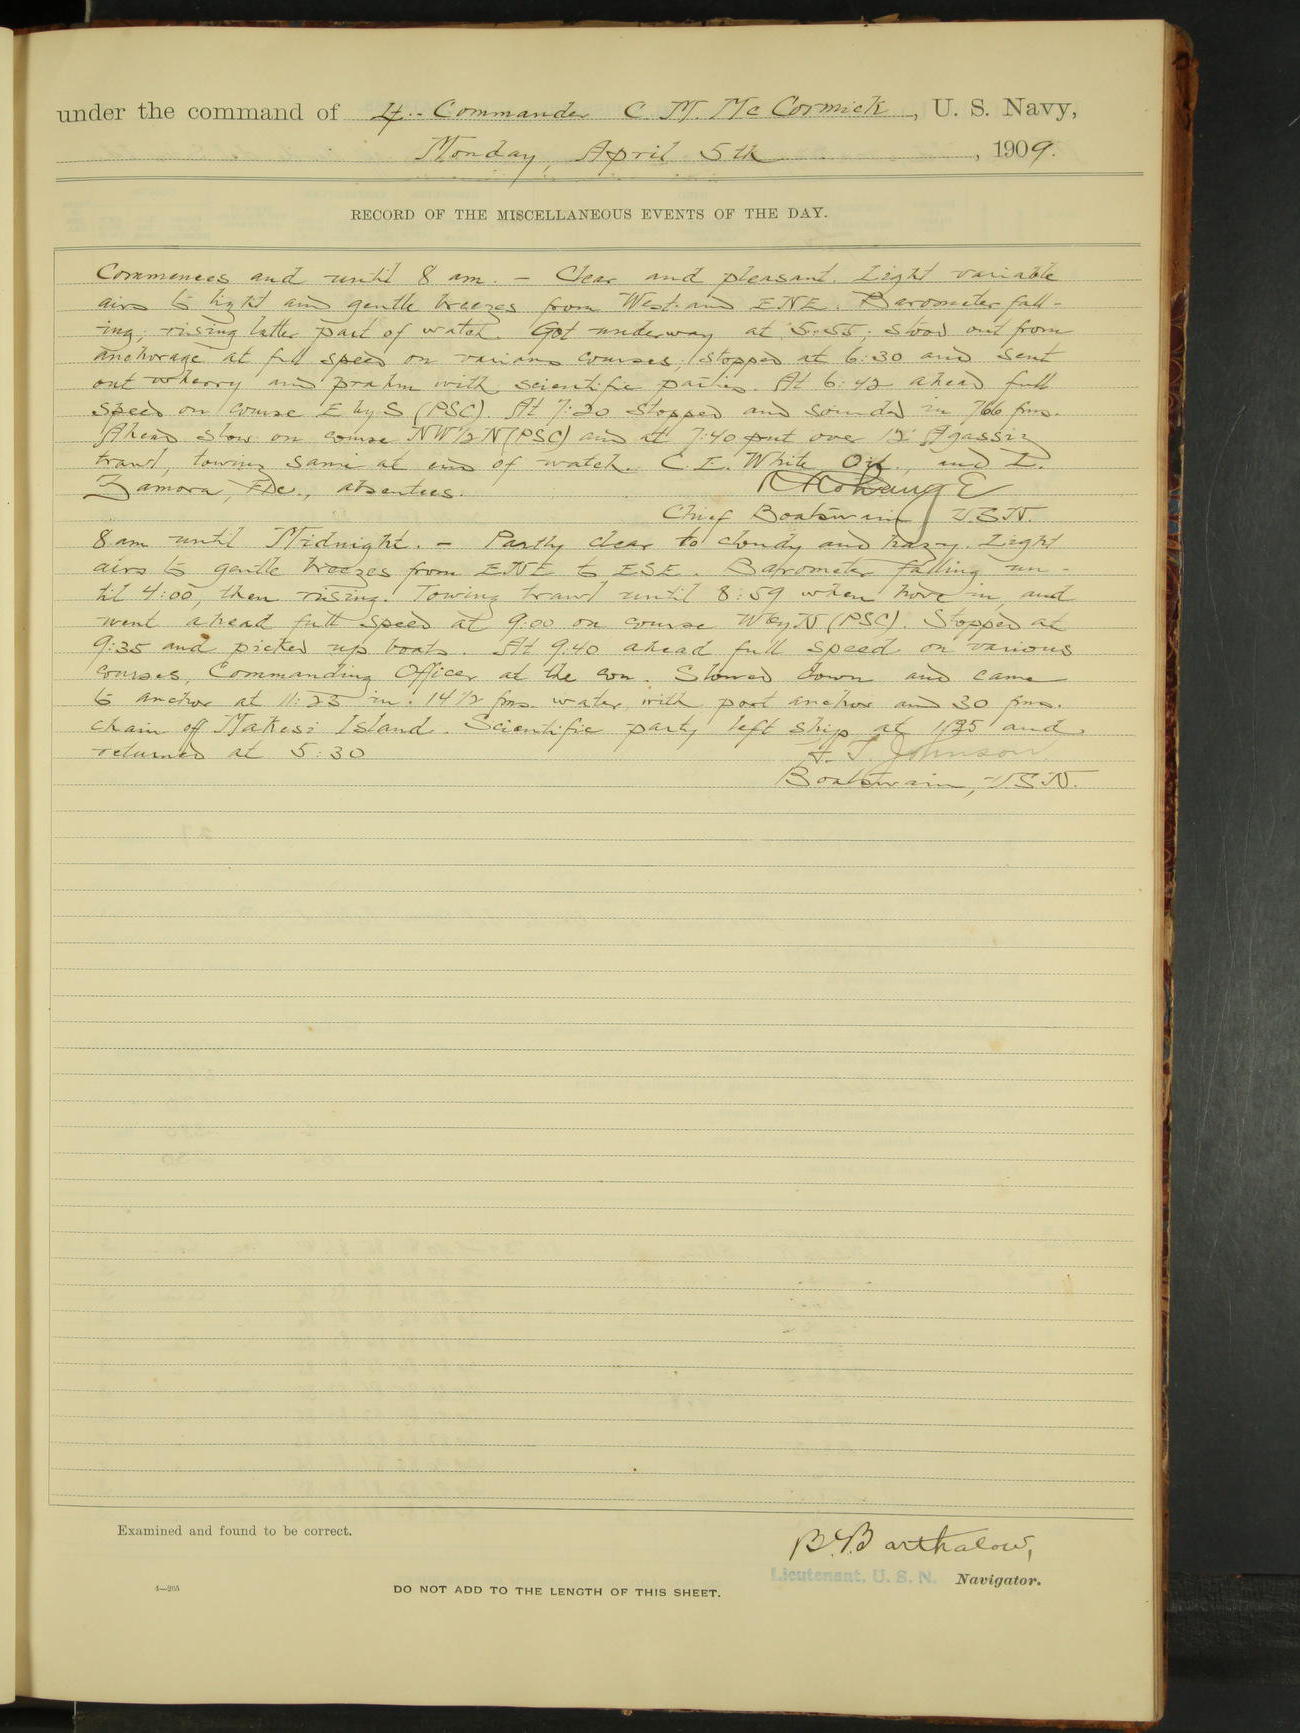 under the command of Lt. Commander C. M. McCormick, U. S. Navy,
Monday, April 5th, 1909.
RECORD OF THE MISCELLANEOUS EVENTS OF THE DAY.
Commences and until 8 am. – Clear and pleasant. Light variable
airs to light and gentle breezes from West and ENE. Barometer fall-
ing; rising latter part of watch. Got underway at 5:55; stood out from
anchorage at full speed on various courses; stopped at 6:30 and sent
out wherry and prahm with scientific parties. At 6:42 ahead full
speed on course E by S (PSC). At 7:20 stopped and sounded in 766 fms.
Ahead slow on course NW½N (PSC) and at 7:40 put over 12' Agassiz
trawl, towing same at end of watch. C. E. White, Oil., and I.
Zamora, FDe., absentees.
Chief Boatswain USN.
8 am until Midnight. – Partly clear to cloudy and hazy. Light
airs to gentle breezes from ENE to ESE. Barometer falling un-
til 4:00, then rising. Towing trawl until 8:59 when hove in, and
went ahead full speed at 9:00 on course WbyN (PSC). Stopped at
9:35 and picked up boats. At 9:40 ahead full speed on various
courses, Commanding Officer at the con. Slowed down and came
to anchor at 11:25 in 14½ fms. water with port anchor and 30 fms.
chain off Makesi Island. Scientific party left ship at and
returned at 5:30
H. T. Johnson
Boatswain, USN.
Examined and found to be correct.
Barthalow,
Lieutenant, U. S. N. Navigator.
4—205
DO NOT ADD TO THE LENGTH OF THIS SHEET.